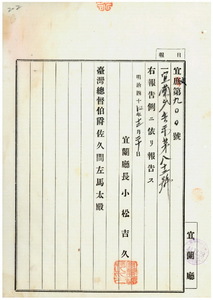 報 日
宜庶第九〇〇號
一宜蘭廳告示第八十五號
右報告例ニ依リ報告ス
明治四十 年 月 日
宜蘭廳長小松吉久
臺灣總督伯爵佐久間左馬太殿
宜蘭廳